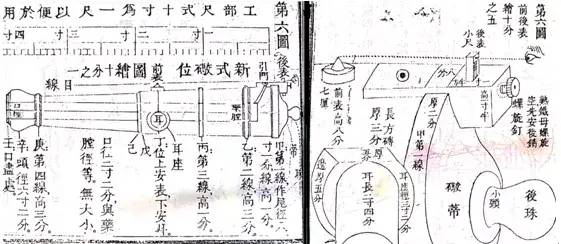 第六圖
前後表
繪十分
之五
後表
小尺
熟鐵母螺旋
坐先安後銷
螺旋釘
後珠
小頸
礟蒂
甲第一線
厚一分
長方磚
厚三分
前表高八分
七厘
耳長二寸四分
邊厚五分
第六圖
工部尺式十寸爲一尺以便於用
一寸
二寸
三寸
四寸
後表
引門
新式礟位圖繪十分之一
前表
線目
耳
口徑
藥膛
耳座
戊
己
甲第一線作尾徑八
寸一分線高一分
乙第二線高三分
丙第三線高一分
丁位上安表下安耳
口位二寸二分與藥
膛徑等無大小
庚第四線高三分
辛頭徑六寸二分
壬口盡處